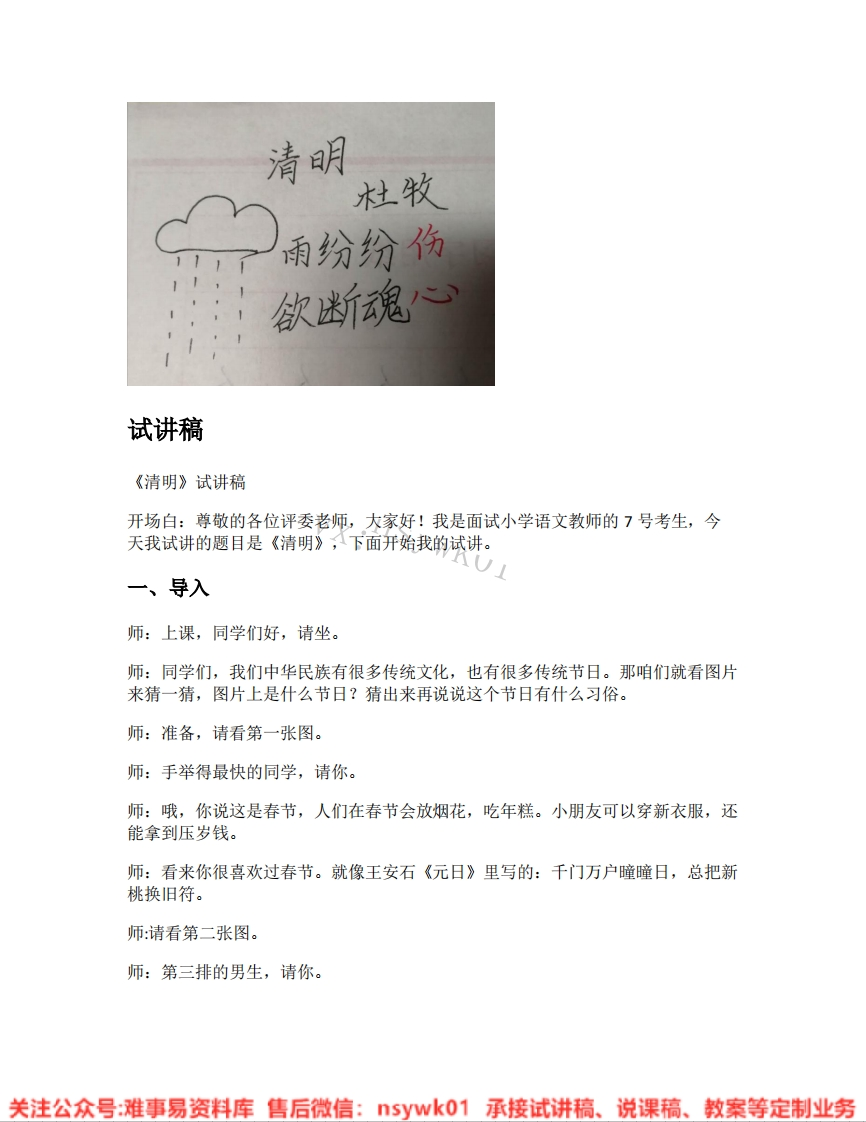 清明
杜牧
雨纷纷 伤
欲断魂 心
试讲稿
《清明》试讲稿
开场白：尊敬的各位评委老师，大家好！我是面试小学语文教师的 7 号考生，今
天我试讲的题目是《清明》，下面开始我的试讲。
一、导入
师：上课，同学们好，请坐。
师：同学们，我们中华民族有很多传统文化，也有很多传统节日。那咱们就看图片
来猜一猜，图片上是什么节日？猜出来再说说这个节日有什么习俗。
师：准备，请看第一张图。
师：手举得最快的同学，请你。
师：哦，你说这是春节，人们在春节会放烟花，吃年糕。小朋友可以穿新衣服，还
能拿到压岁钱。
师：看来你很喜欢过春节。就像王安石《元日》里写的：千门万户曈曈日，总把新
桃换旧符。
师:请看第二张图。
师：第三排的男生，请你。
关注公众号:难事易资料库 售后微信：nsywk01 承接试讲稿、说课稿、教案等定制业务